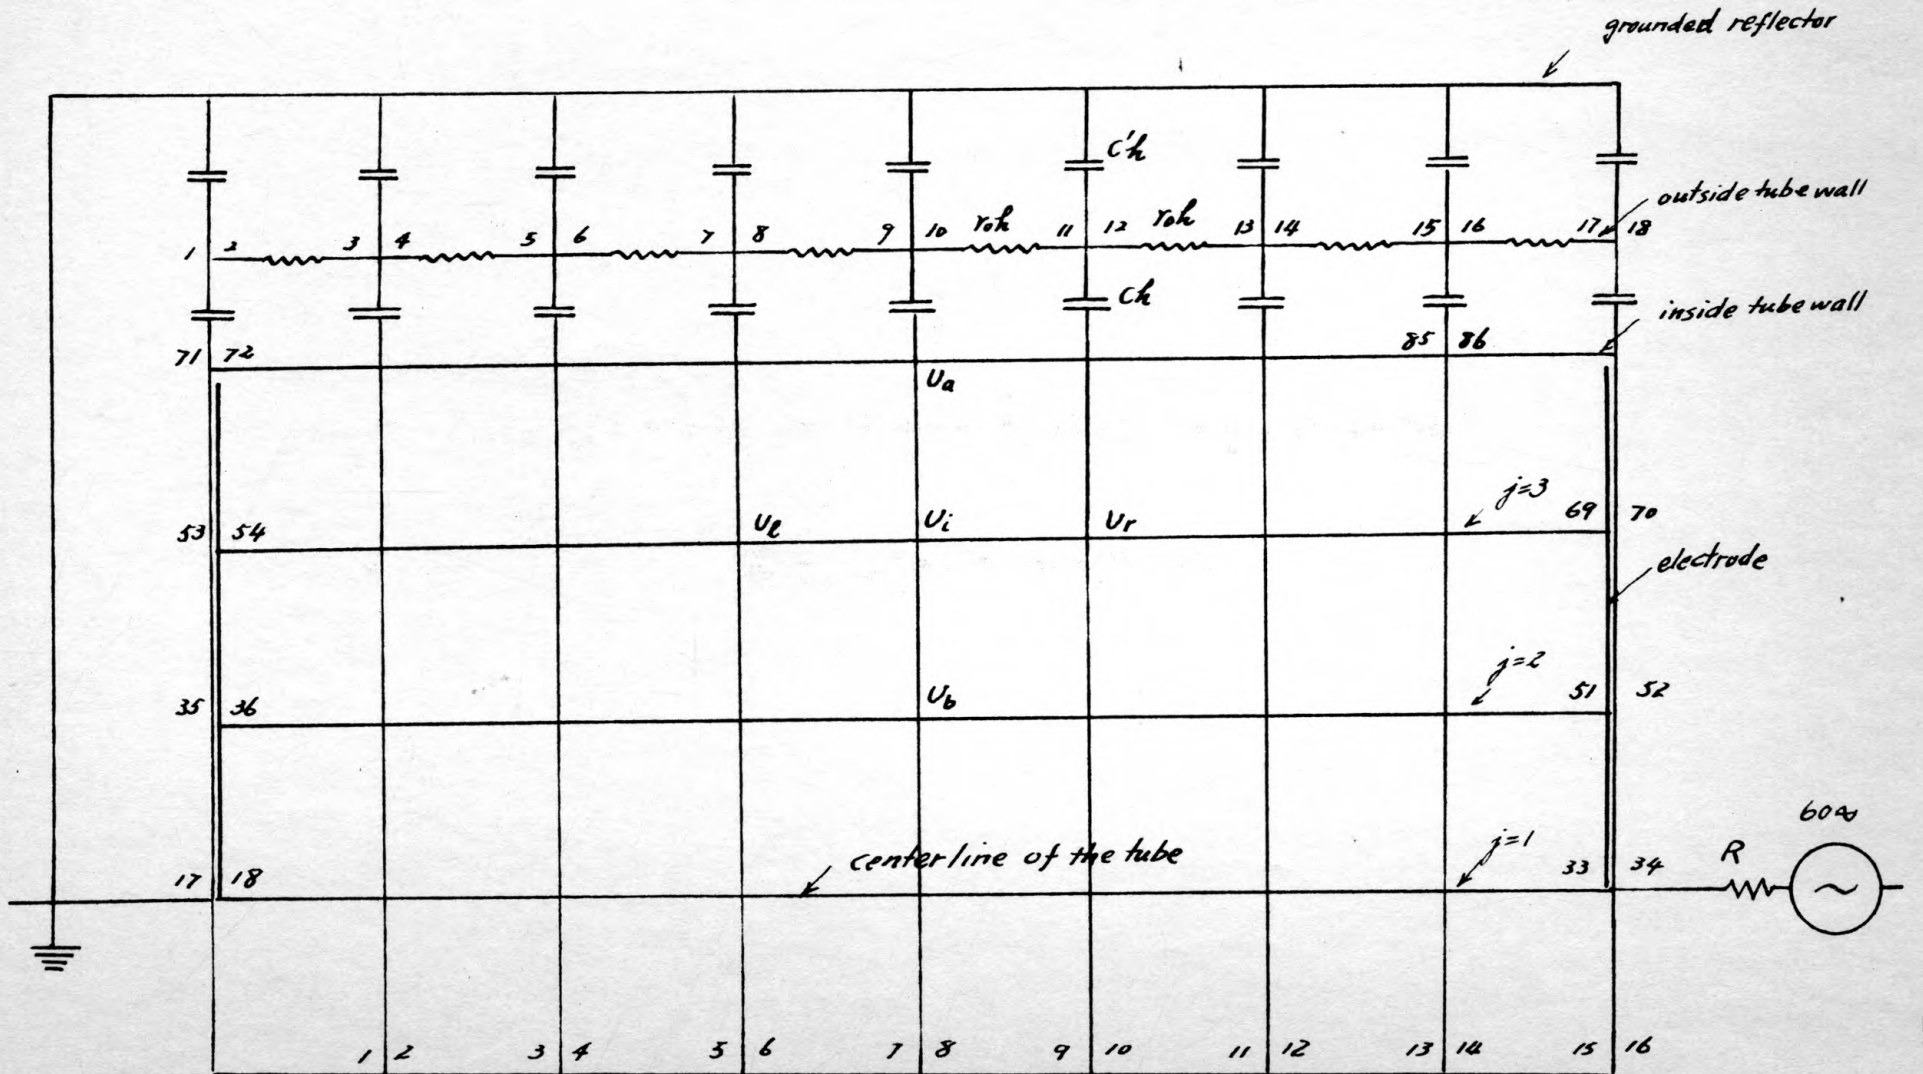 grounded reflector
C'h
outside tube wall
1 2 3 4 5 6 7 8 9 10 roh 11 12 roh 13 14 15 16 17 18
Ch
inside tube wall
71 72 85 86
Ua
j=3
53 54 Ul Ui Ur 69 70
electrode
j=2
35 36 Ub 51 52
60~
centerline of the tube
j=1
R
17 18 33 34
1 2 3 4 5 6 7 8 9 10 11 12 13 14 15 16